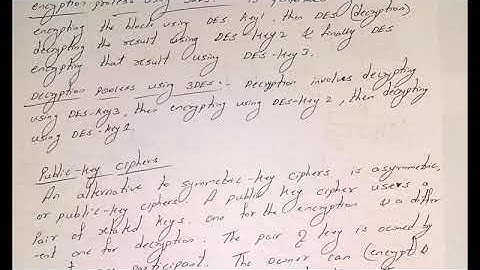 encryption process using
encrypting the block using DES key1, then DES (decryption)
decrypting the result using DES-key2 & finally DES
encrypting that result using DES-key3.
Decryption process using 3DES:- Decryption involves decrypting
using DES-key3, then encrypting using DES-key2, then decrypting
using DES-key1.
Public-key ciphers
An alternative to symmetric-key ciphers is asymmetric,
or public-key ciphers. A public key cipher users a
pair of related keys. one for the encryption & a differ
-ent one for decryption. The pair of key is owned by
participant. The owner can (encrypt)